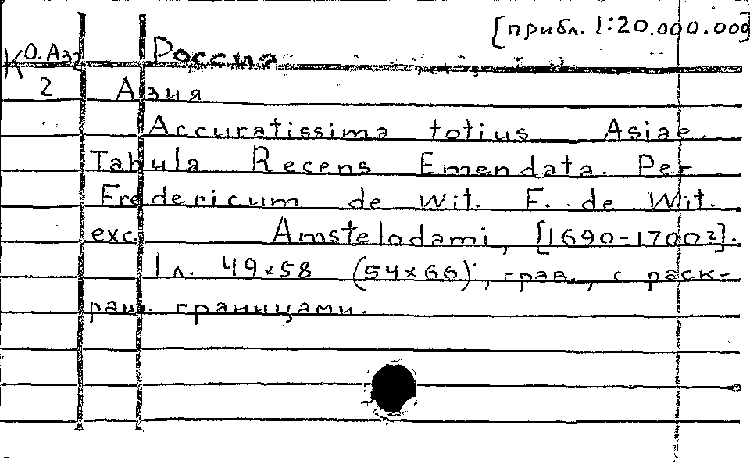 [прибл. 1:20.000.000]
К О.Аз Россия
2 Азия
Accuratissima totius Asiae
Tabula Recens Emendata. Per
Fredericum de Wit. F. de Wit.
exc. Amstelodami, [1690-1700?].
1 л. 49×58 (54×66), грав., с раск-
раш. границами.